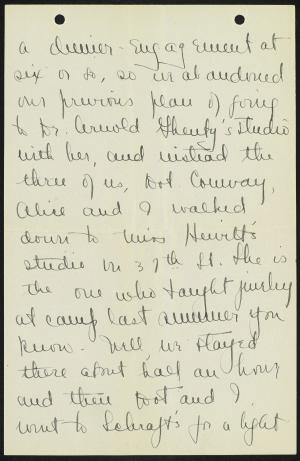 a dinner-engagement at
six or so, so we abandoned
our previous plan of going
to Dr. Arnold Shenfy's studio
with her, and instead the
three of us, Dot Conway,
Alice and I walked
down to Miss Hewitt's
studio in 37th St. She is
the one who taught jewelry
at camp last summer you
know. Well, we stayed
there about half an hour
and then Dot and I
went to Schraft's for a light